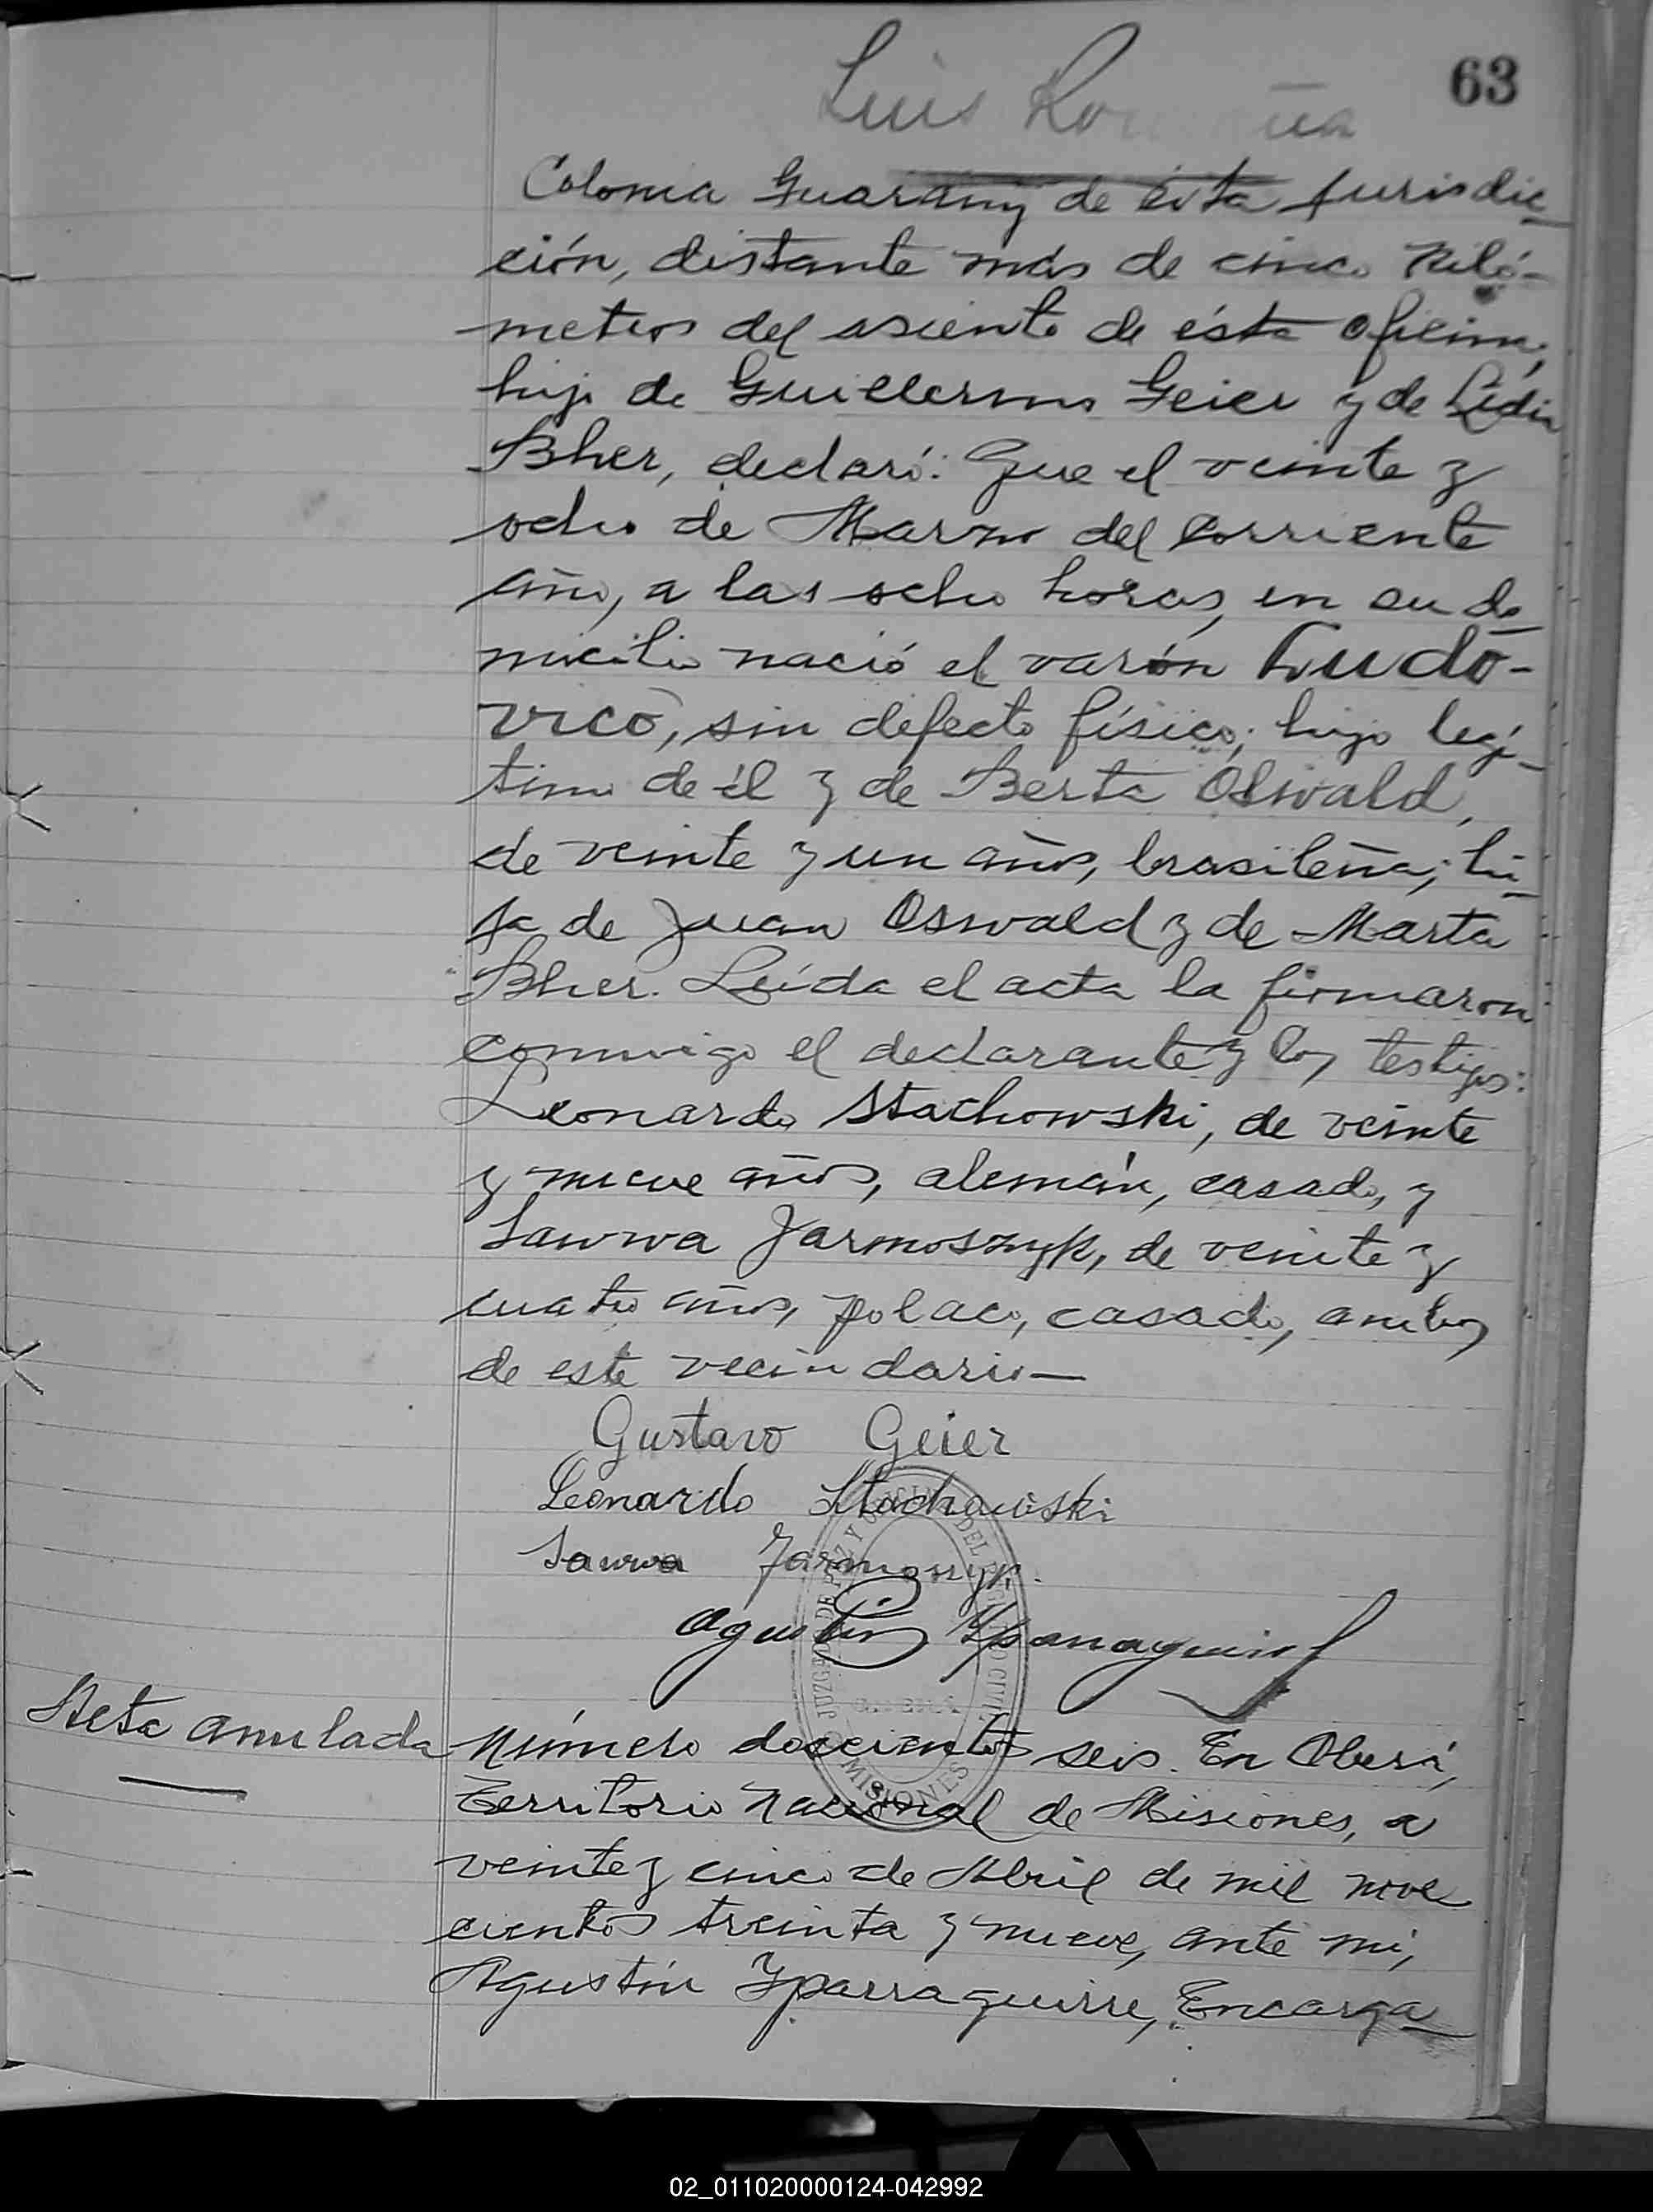 63
Luis
Colonia Guarany de ésta Jurisdic-
ción, distante más de cinco Kiló-
metros del asiento de ésta Oficina,
hijo de Guillermo Geier y de Lidia
Bher, declaró: Que el veinte y
ocho de Marzo del corriente
año, a las ocho horas, en su do-
micilio nació el varón Ludo-
vico, sin defecto físico; hijo legí-
timo de él y de Berta Oswald,
de veinte y un años, brasileña; hi-
ja de Juan Oswald y de Marta
Bher. Leída el acta la firmaron
conmigo el declarante y los testigos:
Leonardo Stachowski, de veinte
y nueve años, alemán, casado, y
Sawwa Jarmoszyk, de veinte y
cuatro años, polaco, casado, ambos
de este vecindario—
Gustavo Geier
Leonardo Stachowski
Sawwa
Agustin Yparraguirre
JUZGADO DE PAZ Y DEL CIVIL
MISIONES
Acta anulada
Número doscientos seis. En Oberá,
Territorio Nacional de Misiones, a
veinte y cinco de Abril de mil nove
cientos treinta y nueve, ante mí,
Agustín Yparraguirre, Encarga-
02_011020000124-042992